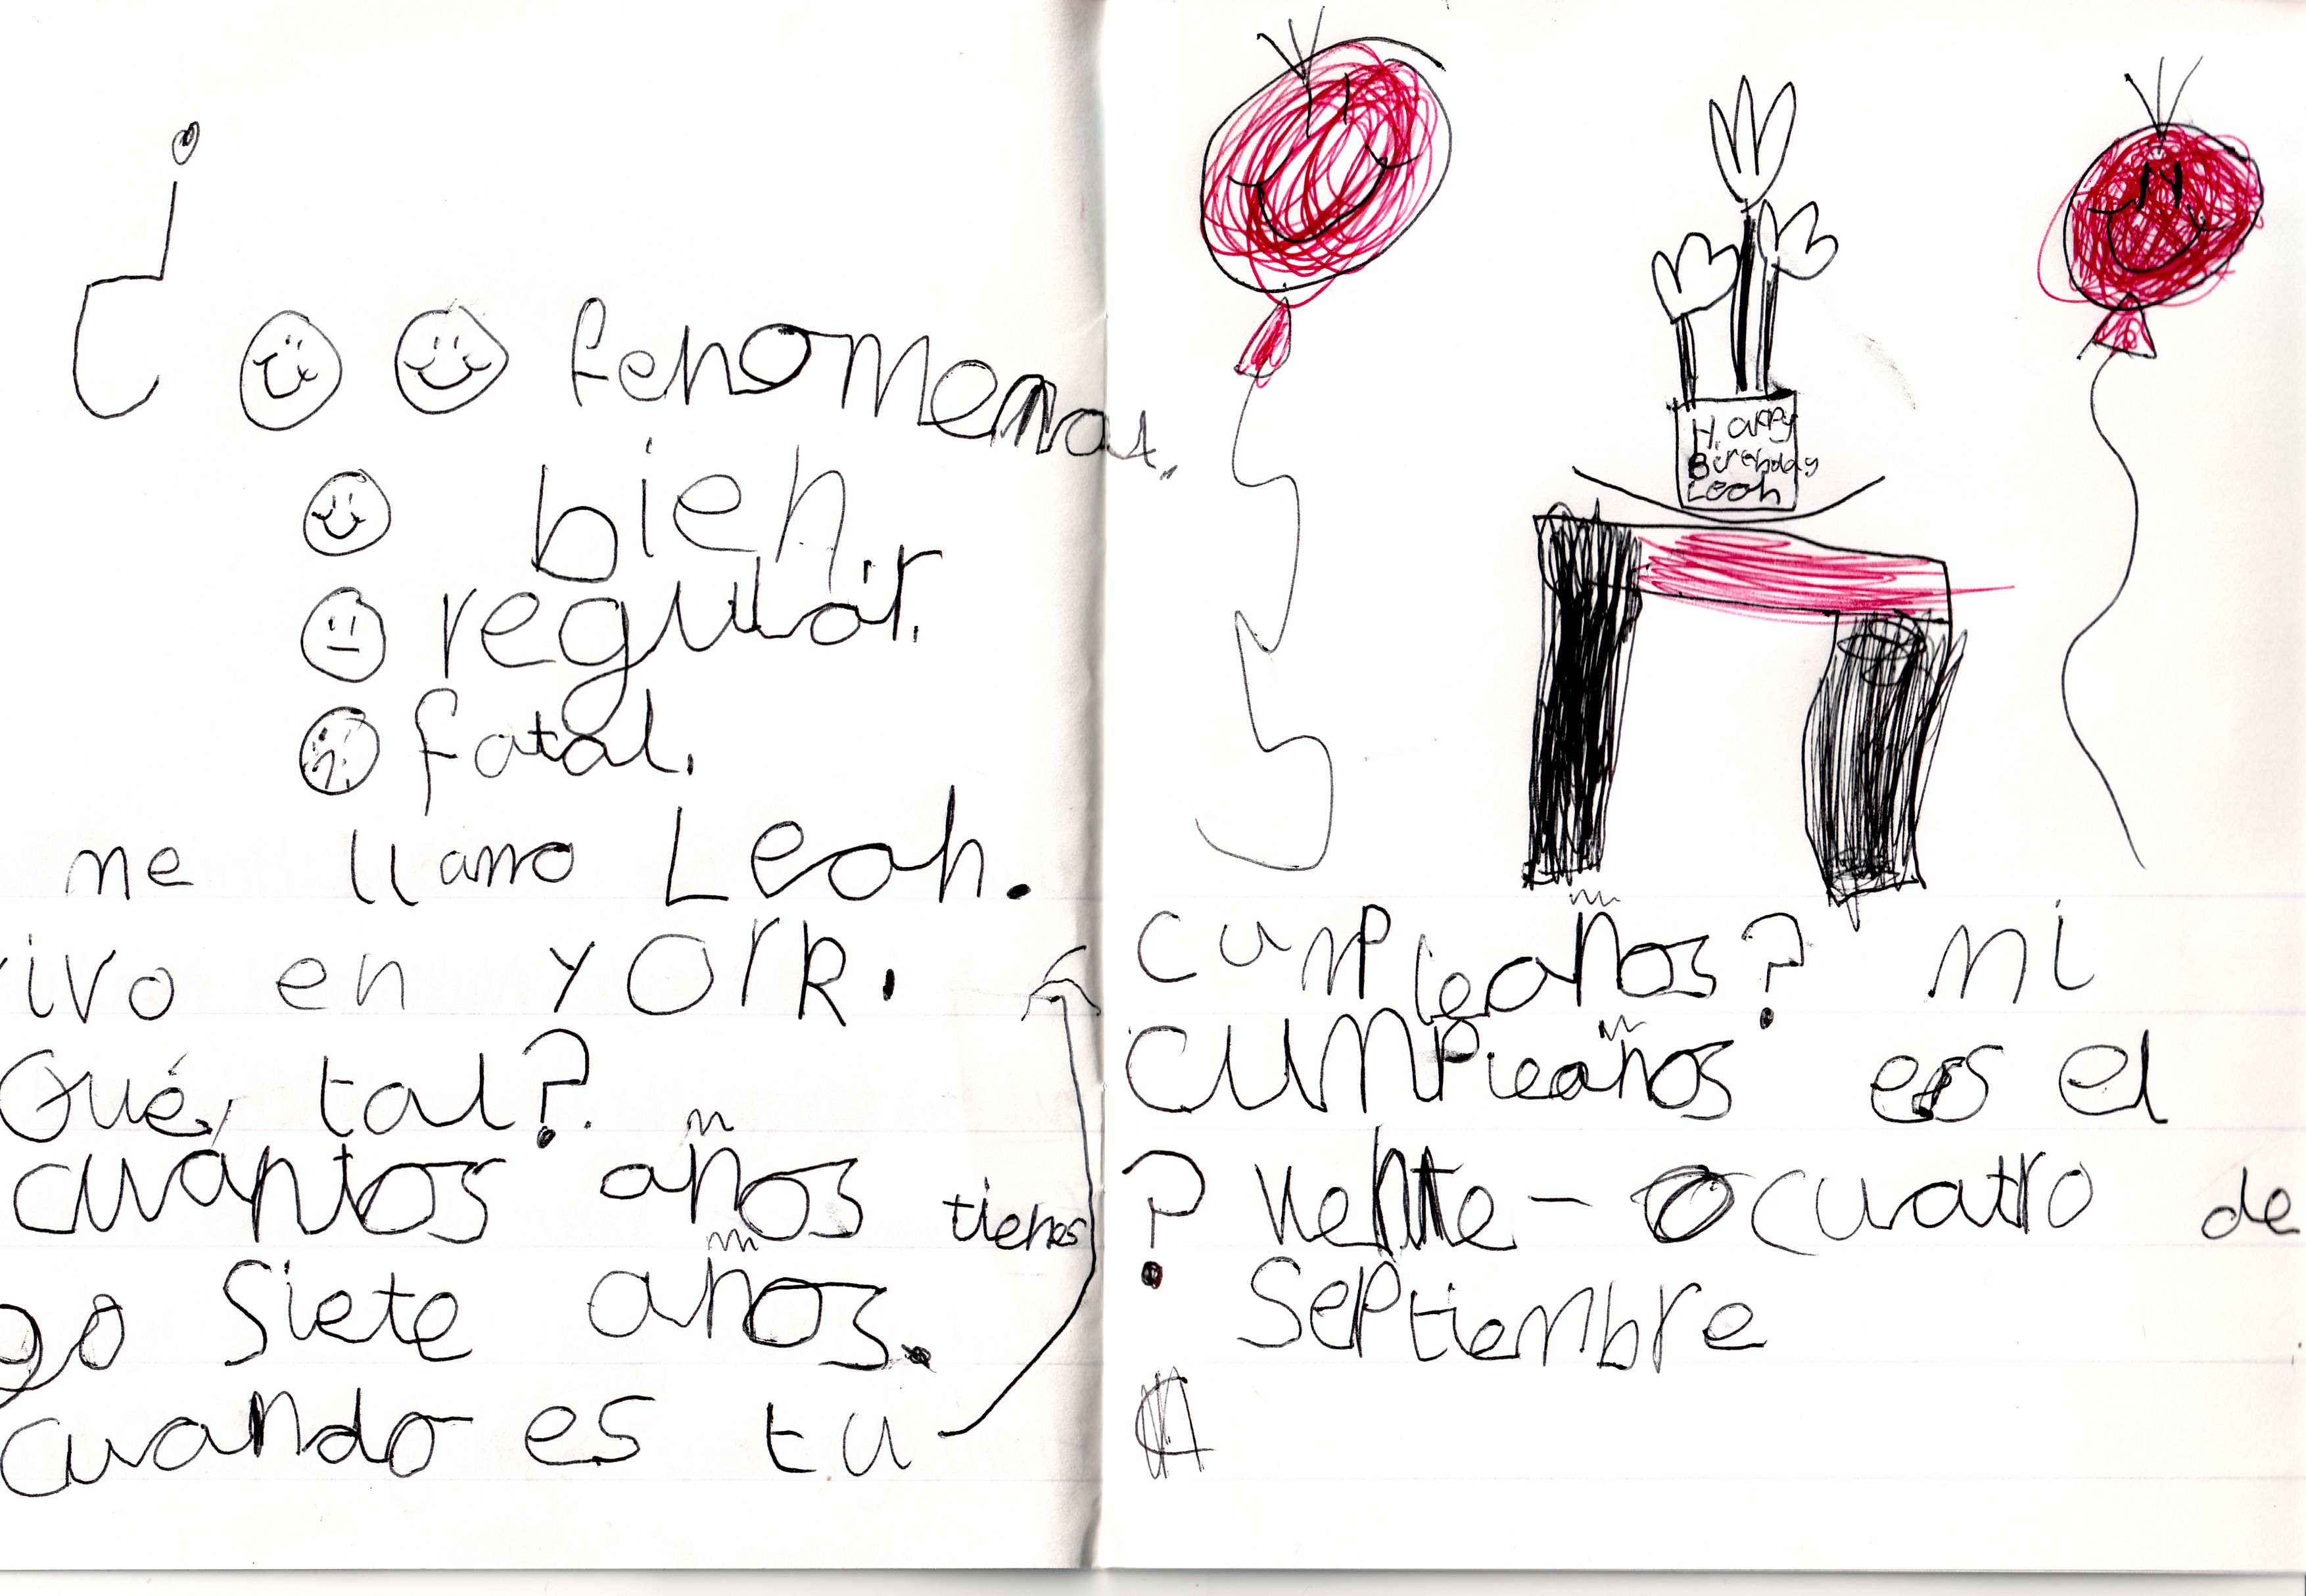 ¿
fenomenal.
bien.
regular.
fatal.
me llamo Leah.
ivo en york.
Qué, tal?.
cuantos años tienes
go siete años.
cuando es tu
Happy
Birthday
Leah
cumpleaños? mi
cumpleaños es el
? viente - cuatro de
septiembre